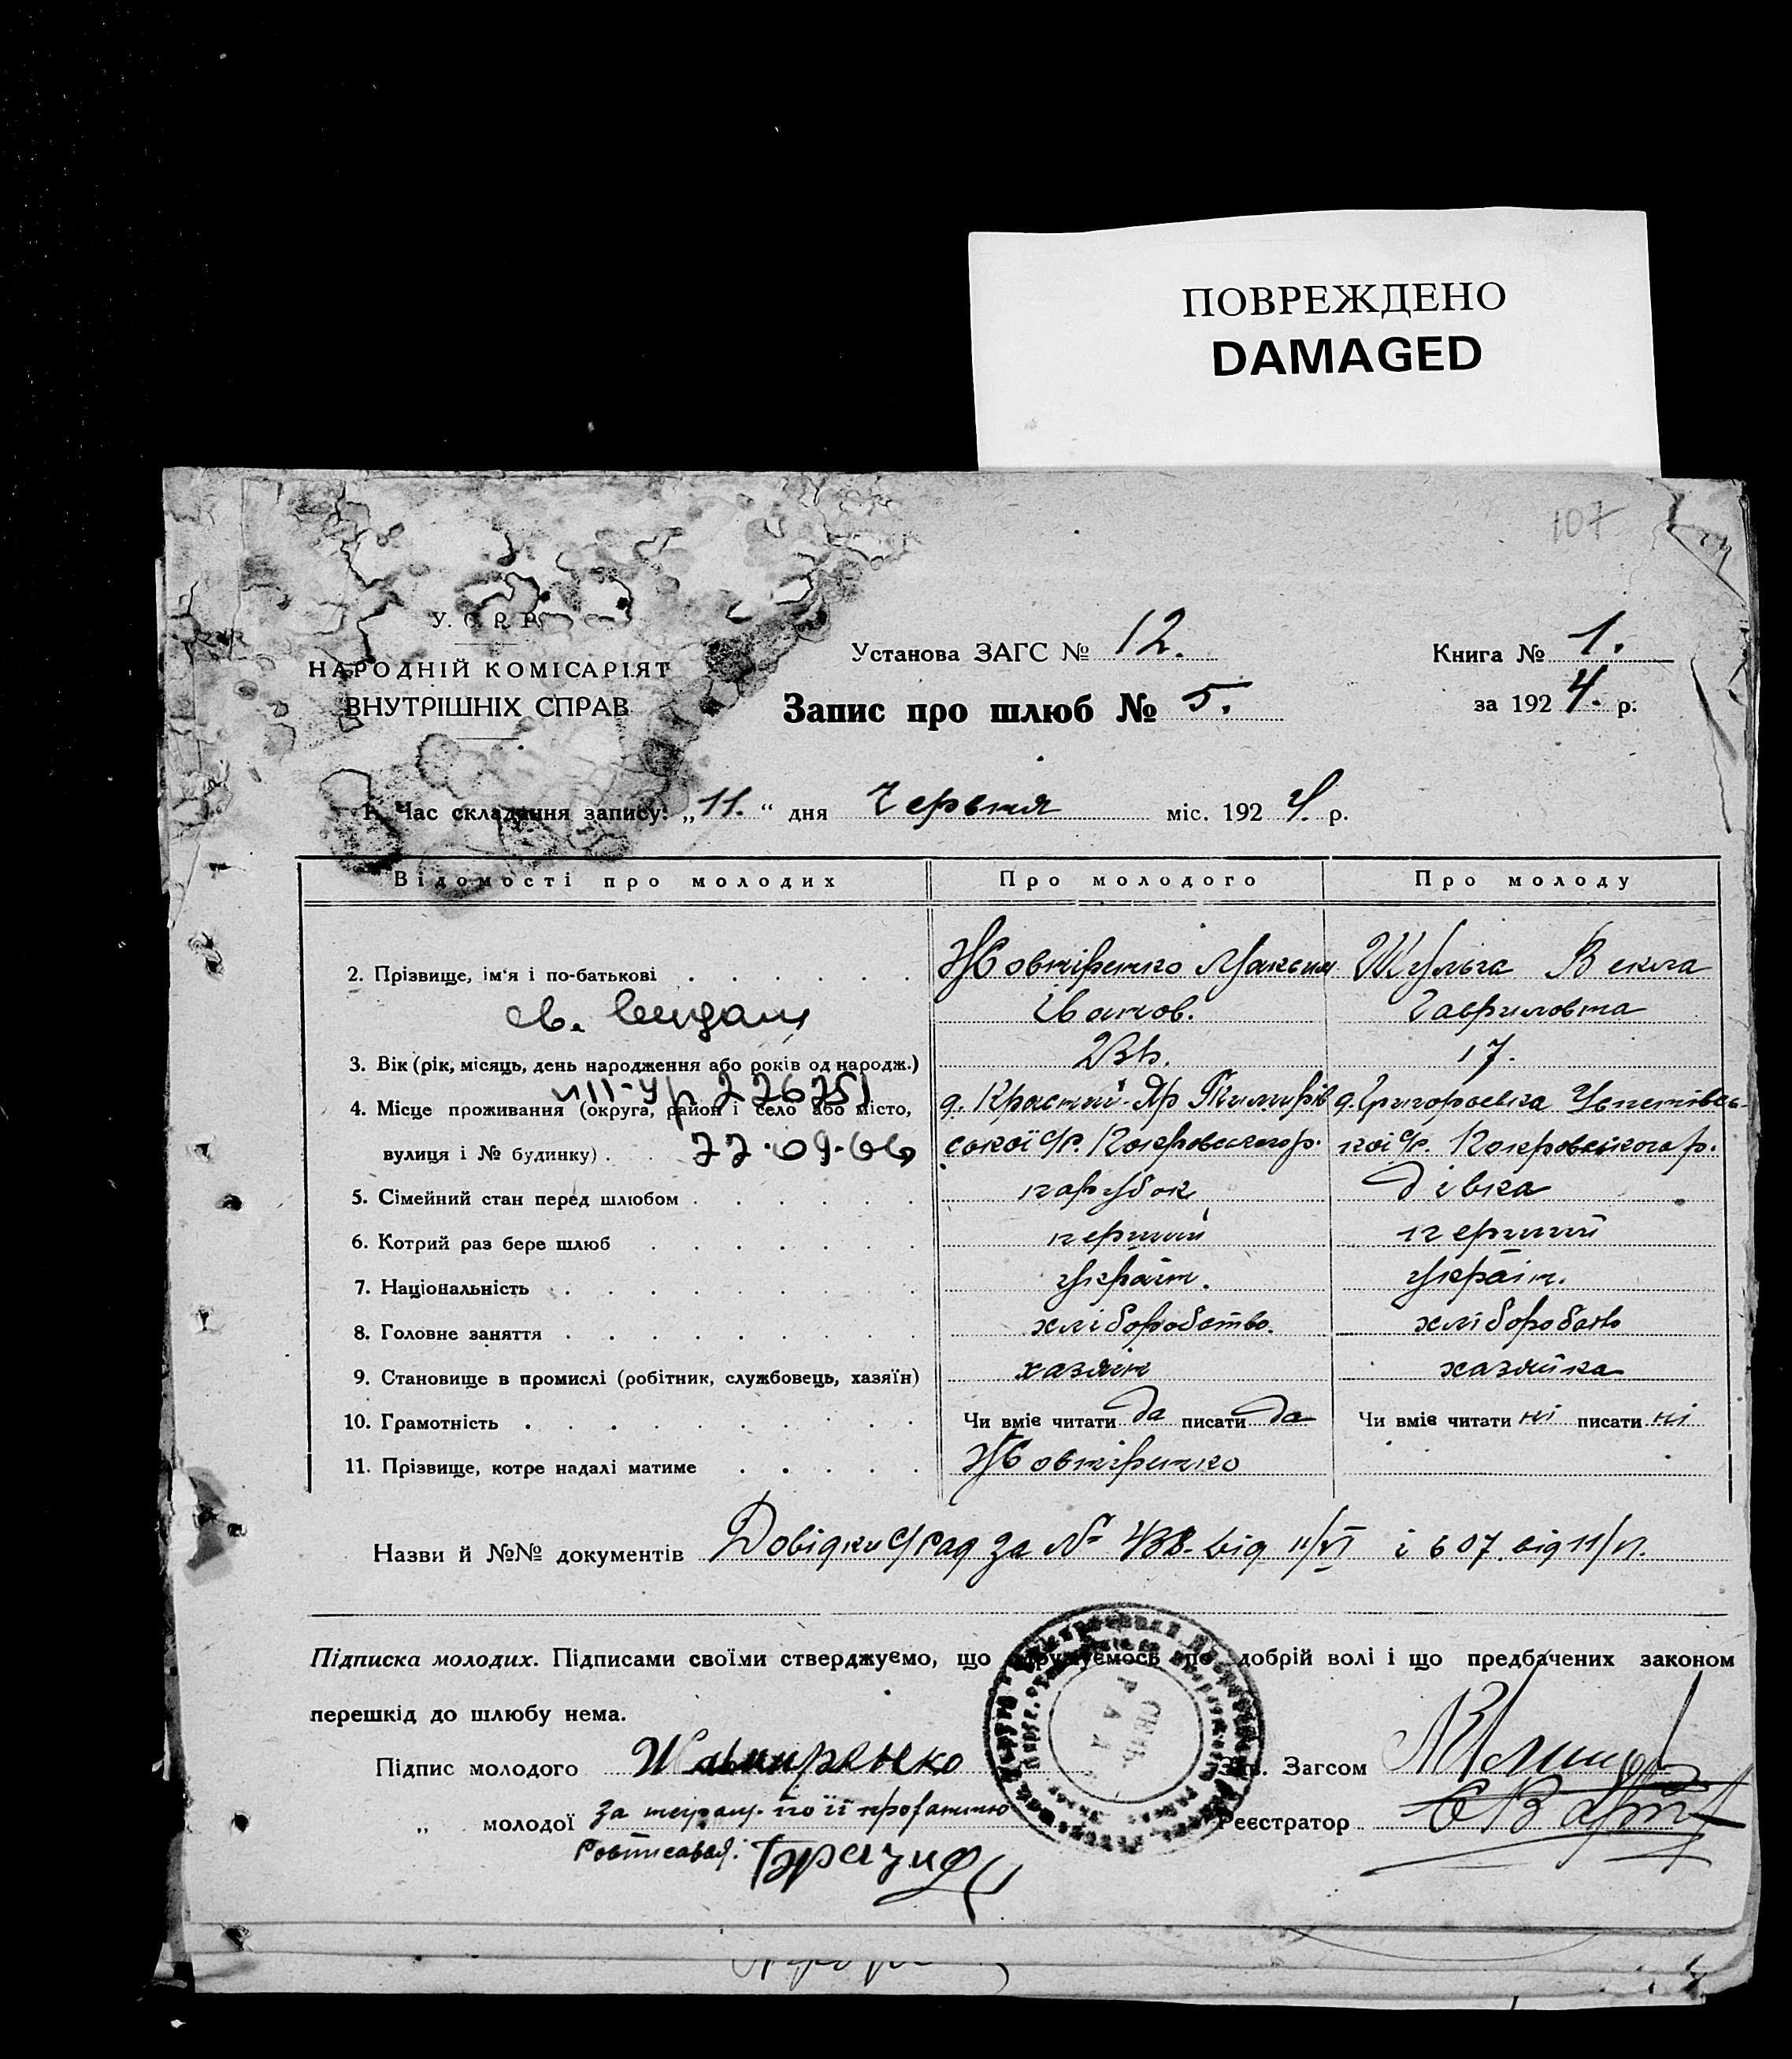 ПОВРЕЖДЕНО
DAMAGED
107
У. С. Р. Р.
НАРОДНІЙ КОМІСАРІЯТ
ВНУТРІШНІХ СПРАВ
Установа ЗАГС № 12.
Книга № 1.
Запис про шлюб № 5.
за 1924. р.
1. Час складання запису: „11.“ дня Червня міс. 1924. р.
Відомості про молодих Про молодого Про молоду
2. Прізвище, ім'я і по-батькові Жовтіренко Максим Шульга Векла
св. видано Іванов. Гавриловна
3. Вік (рік, місяць, день народження або років од народж.) 17.
4. Місце проживання (округа, район і село або місто, д. Красний-Яр д. Григорьевка Успенівсь-
вулиця і № будинку) 22.09.66 ської с/р. Покровського р. кої с/р. Покровського р.
5. Сімейний стан перед шлюбом парубок дівка
6. Котрий раз бере шлюб перший перший
7. Національність україн. україн.
8. Головне заняття хліборобство. хліборобство
9. Становище в промислі (робітник, службовець, хазяїн) хазяїн хазяйка
10. Грамотність Чи вміє читати да писати да Чи вміє читати ні писати ні
11. Прізвище, котре надалі матиме Жовтіренко
Назви й №№ документів Довідки с/рад за № 438. від 11/VI і 607. від 11/VI.
Підписка молодих. Підписами своїми стверджуємо, що одружуємось по добрій волі і що предбачених законом
перешкід до шлюбу нема.
Підпис молодого Жовтиренко Зав. Загсом
„ молодої за неграм. по її проханню Реєстратор
Розписався: